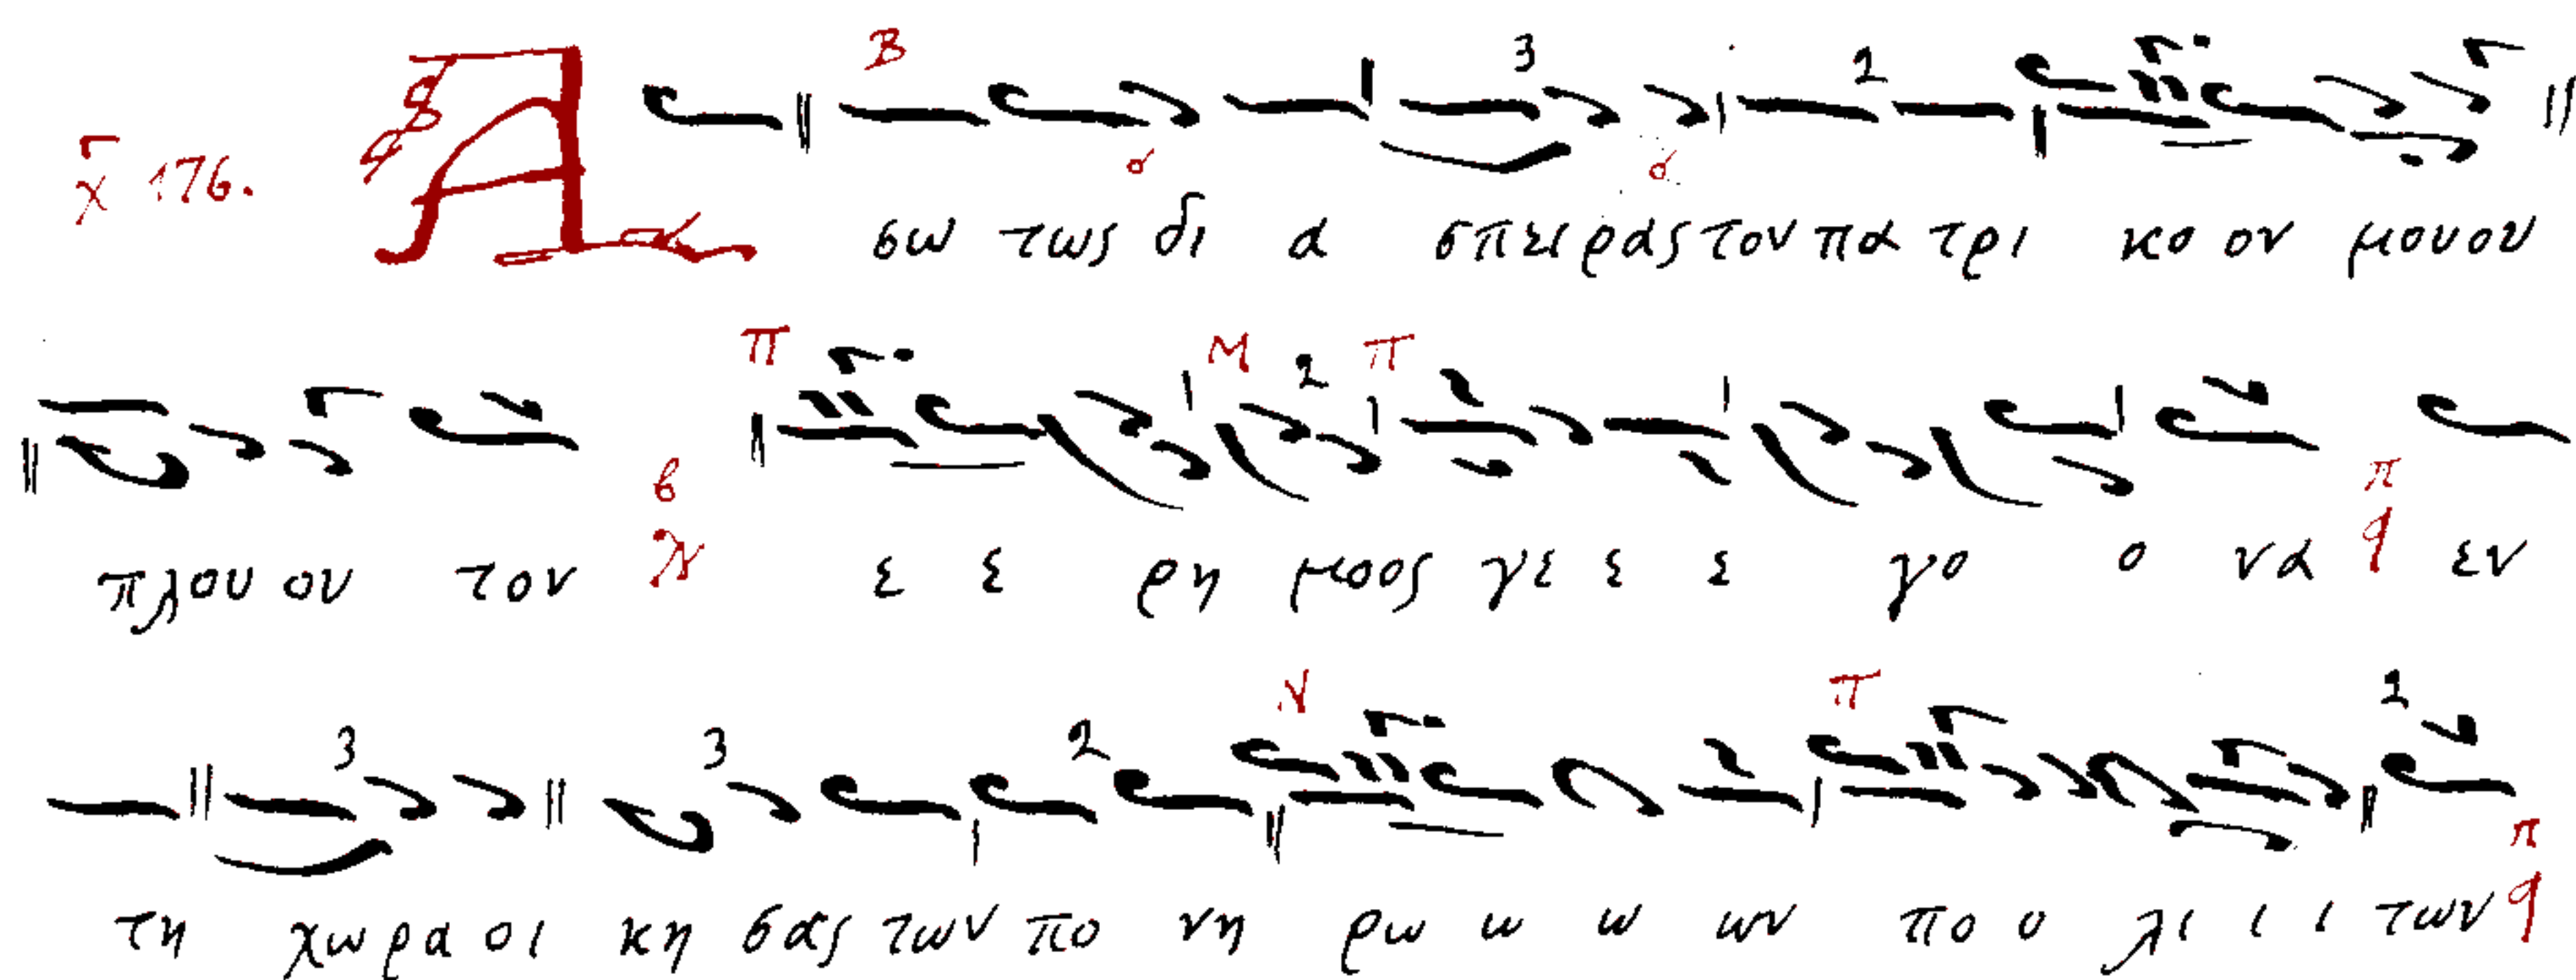 χ 176. Α σω τως δι α σπει ρας τον πα τρι κο ον μου ου
πλου ου τον ε ε ρη μοος γε ε ε γο ο να εν
τη χω ρα οι κη σας των πο νη ρω ω ω ων πο ο λι ι ι των